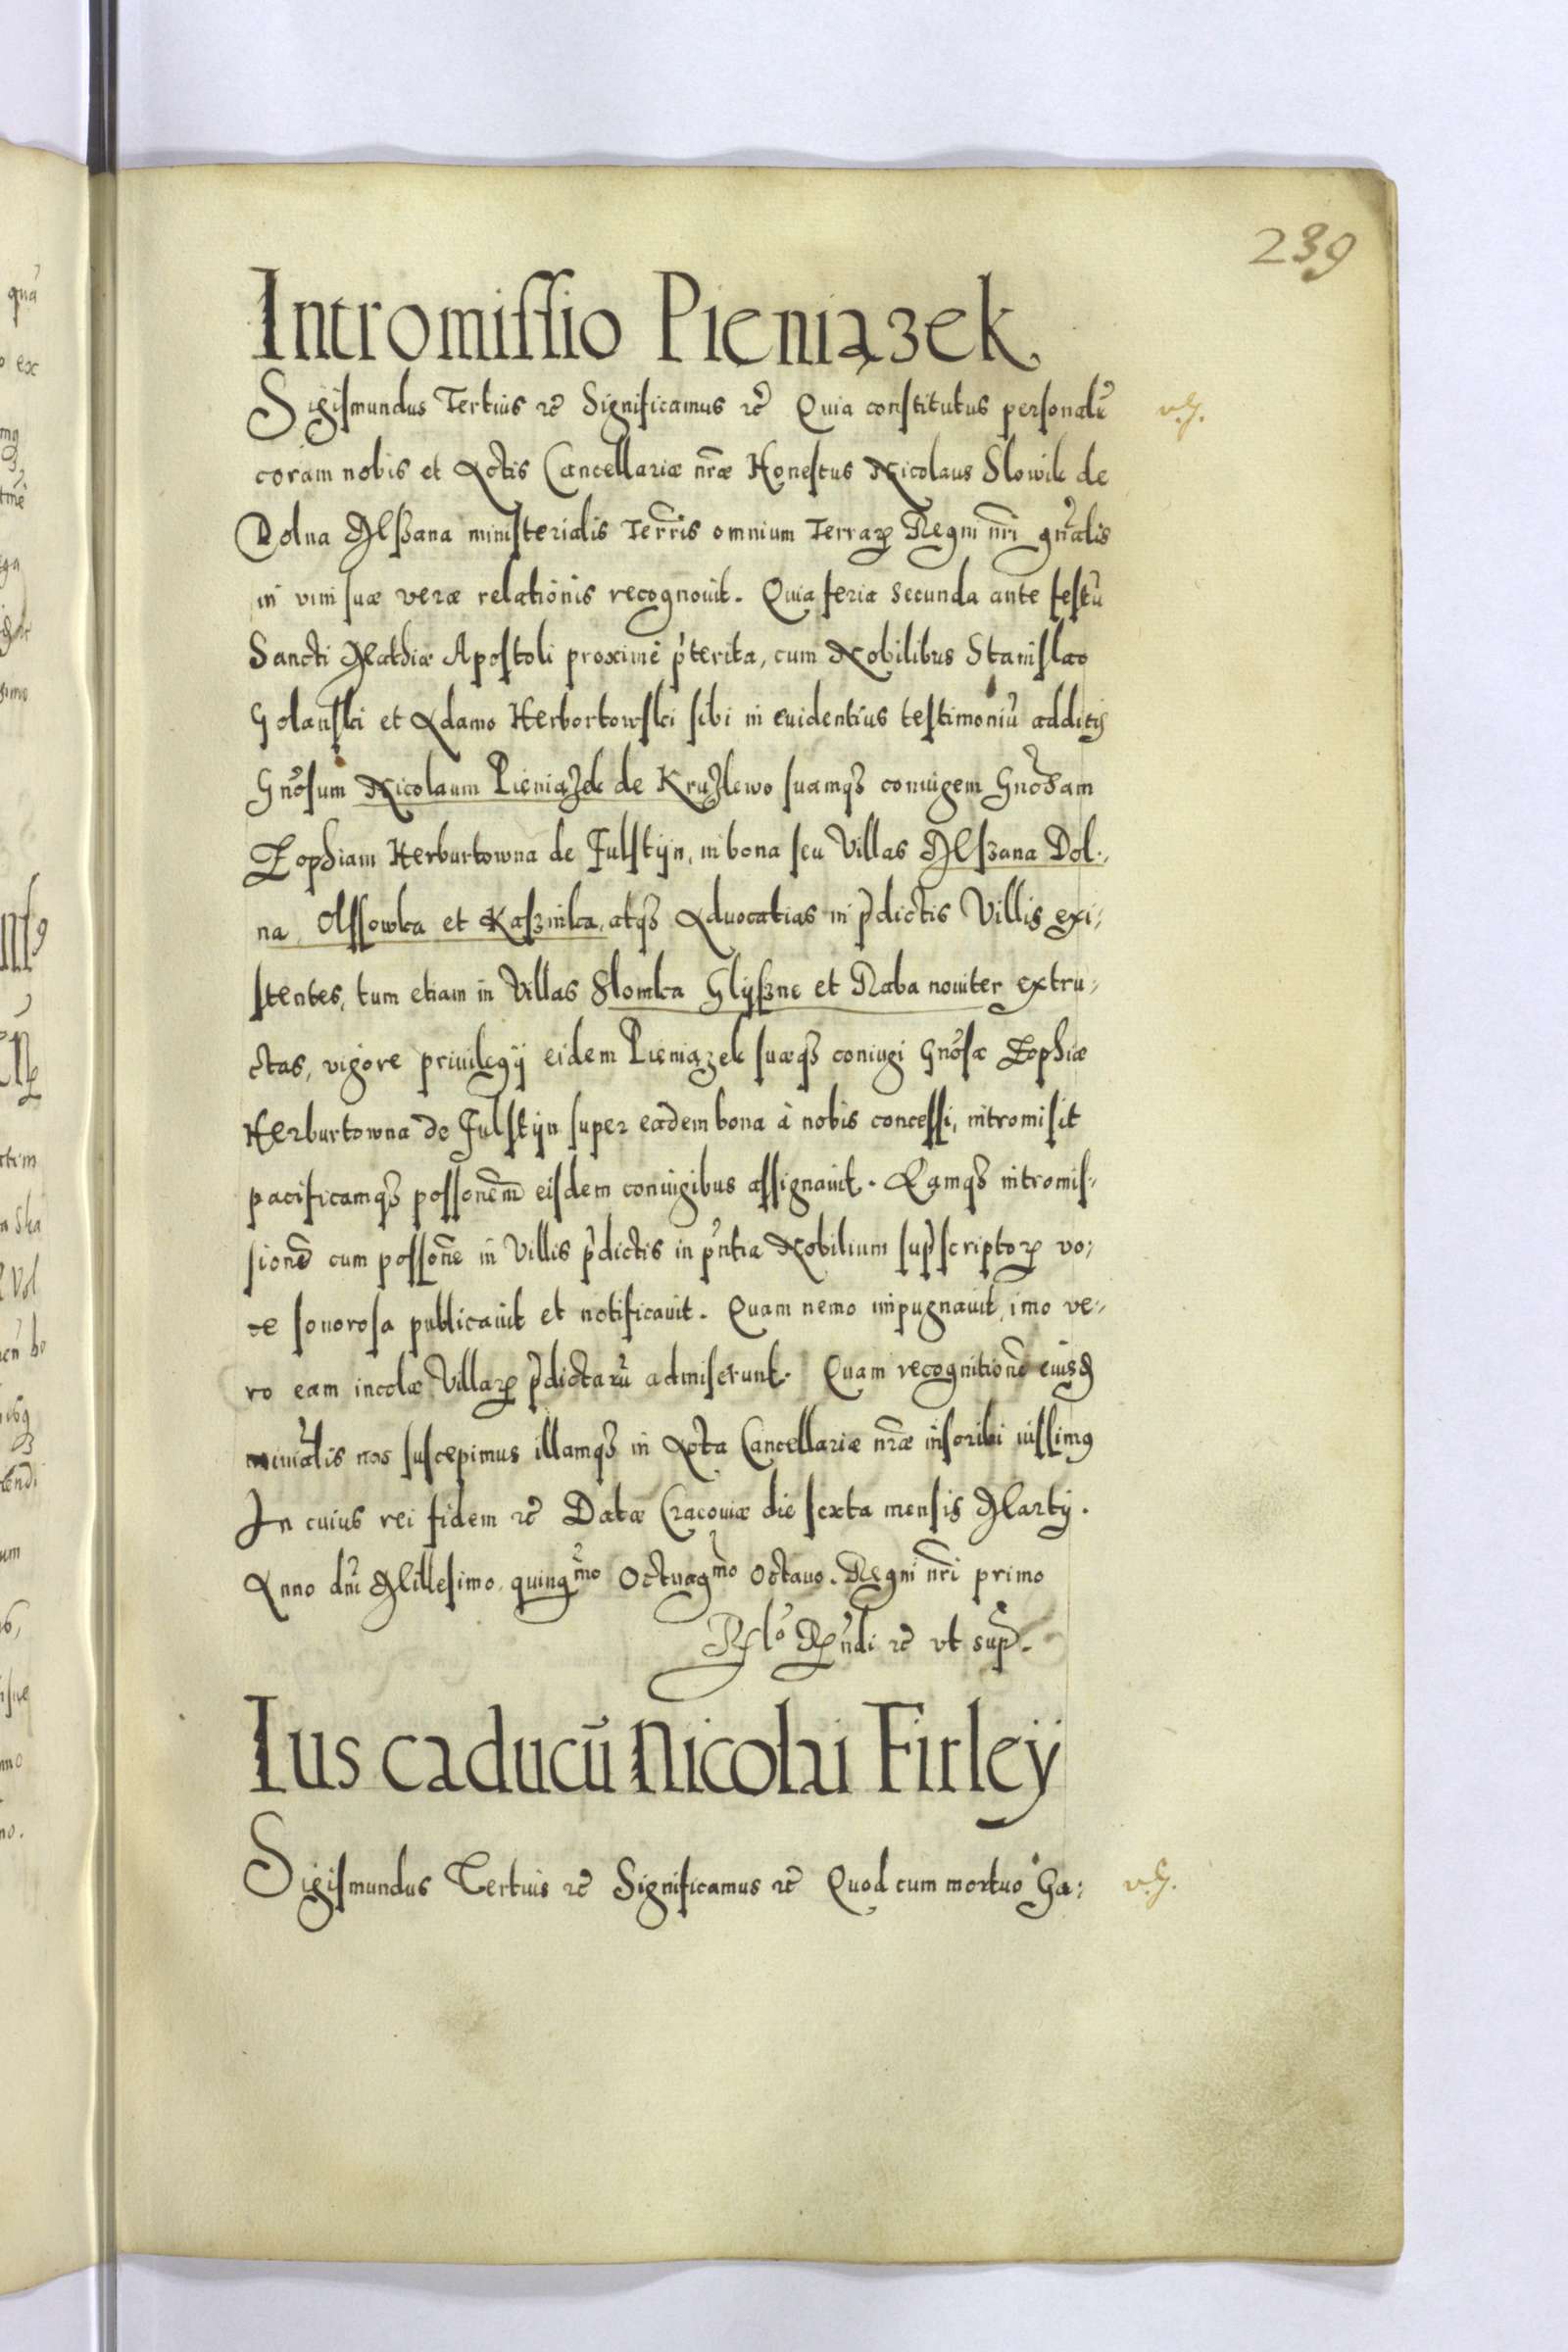 239
Intromissio Pieniązek
Sigismundus Tertius etc̃ Significamus etc̃ Quia constitutus personalr̃
coram nobis et Actis Cancellariæ nr̃æ Honestus Nicolaus Slowik de
Dolna Mszana ministerialis Terrr̃is omnium Terraꝝ Regni nr̃i gnr̃alis
in vim suæ veræ relationis recognouit. Quia feria secunda ante festũ
Sancti Mathiæ Apostoli proximè p̃terita, cum Nobilibus Stanislao
Golanski et Adamo Herbortowski sibi in euidentius testimoniũ additis
Gnõsum Nicolaum Pieniązek de Kruzlewo suamqꝫ coniugem Gnõsam
Zophiam Herburtowna de Fulstÿn, in bona seu Villas Mszana Dol-
na Olssowka et Kaszinka, atqꝫ Aduocatias in p̃dictis Villis exi-
stentes, tum etiam in Villas Slomka Glÿszne et Raba nouiter extru-
ctas, vigore priuilegÿ eidem Pieniązek suæqꝫ coniugi Gnõsæ Zophiæ
Herburtowna de Fulstÿn super eadem bona à nobis concessi, intromisit
pacificamqꝫ possonẽm eisdem coniugibus assignauit. Eamqꝫ intromis-
sionẽ cum possonẽ in Villis p̃dictis in p̃ntia Nobilium sup̃scriptoꝝ vo-
ce sonorosa publicauit et notificauit. Quam nemo impugnauit, imo ve-
ro eam incolæ Villaꝝ p̃dictarũ admiserunt. Quam recognitionẽ eiusđ
minr̃alis nos suscepimus illamqꝫ in Acta Cancellariæ nr̃æ inscribi iussimꝯ
In cuius rei fidem etc̃ Datæ Cracouiæ die sexta mensis Martÿ.
Anno dñi Millesimo quingmo Octuagmo Octauo. Regni nr̃i primo
Rlõ Rñdi etc̃ vt sup̃.
Ius caducũ Nicolai Firleÿ
Sigismundus Tertius etc̃ Significamus etc̃ Quod cum mortuo Ga-